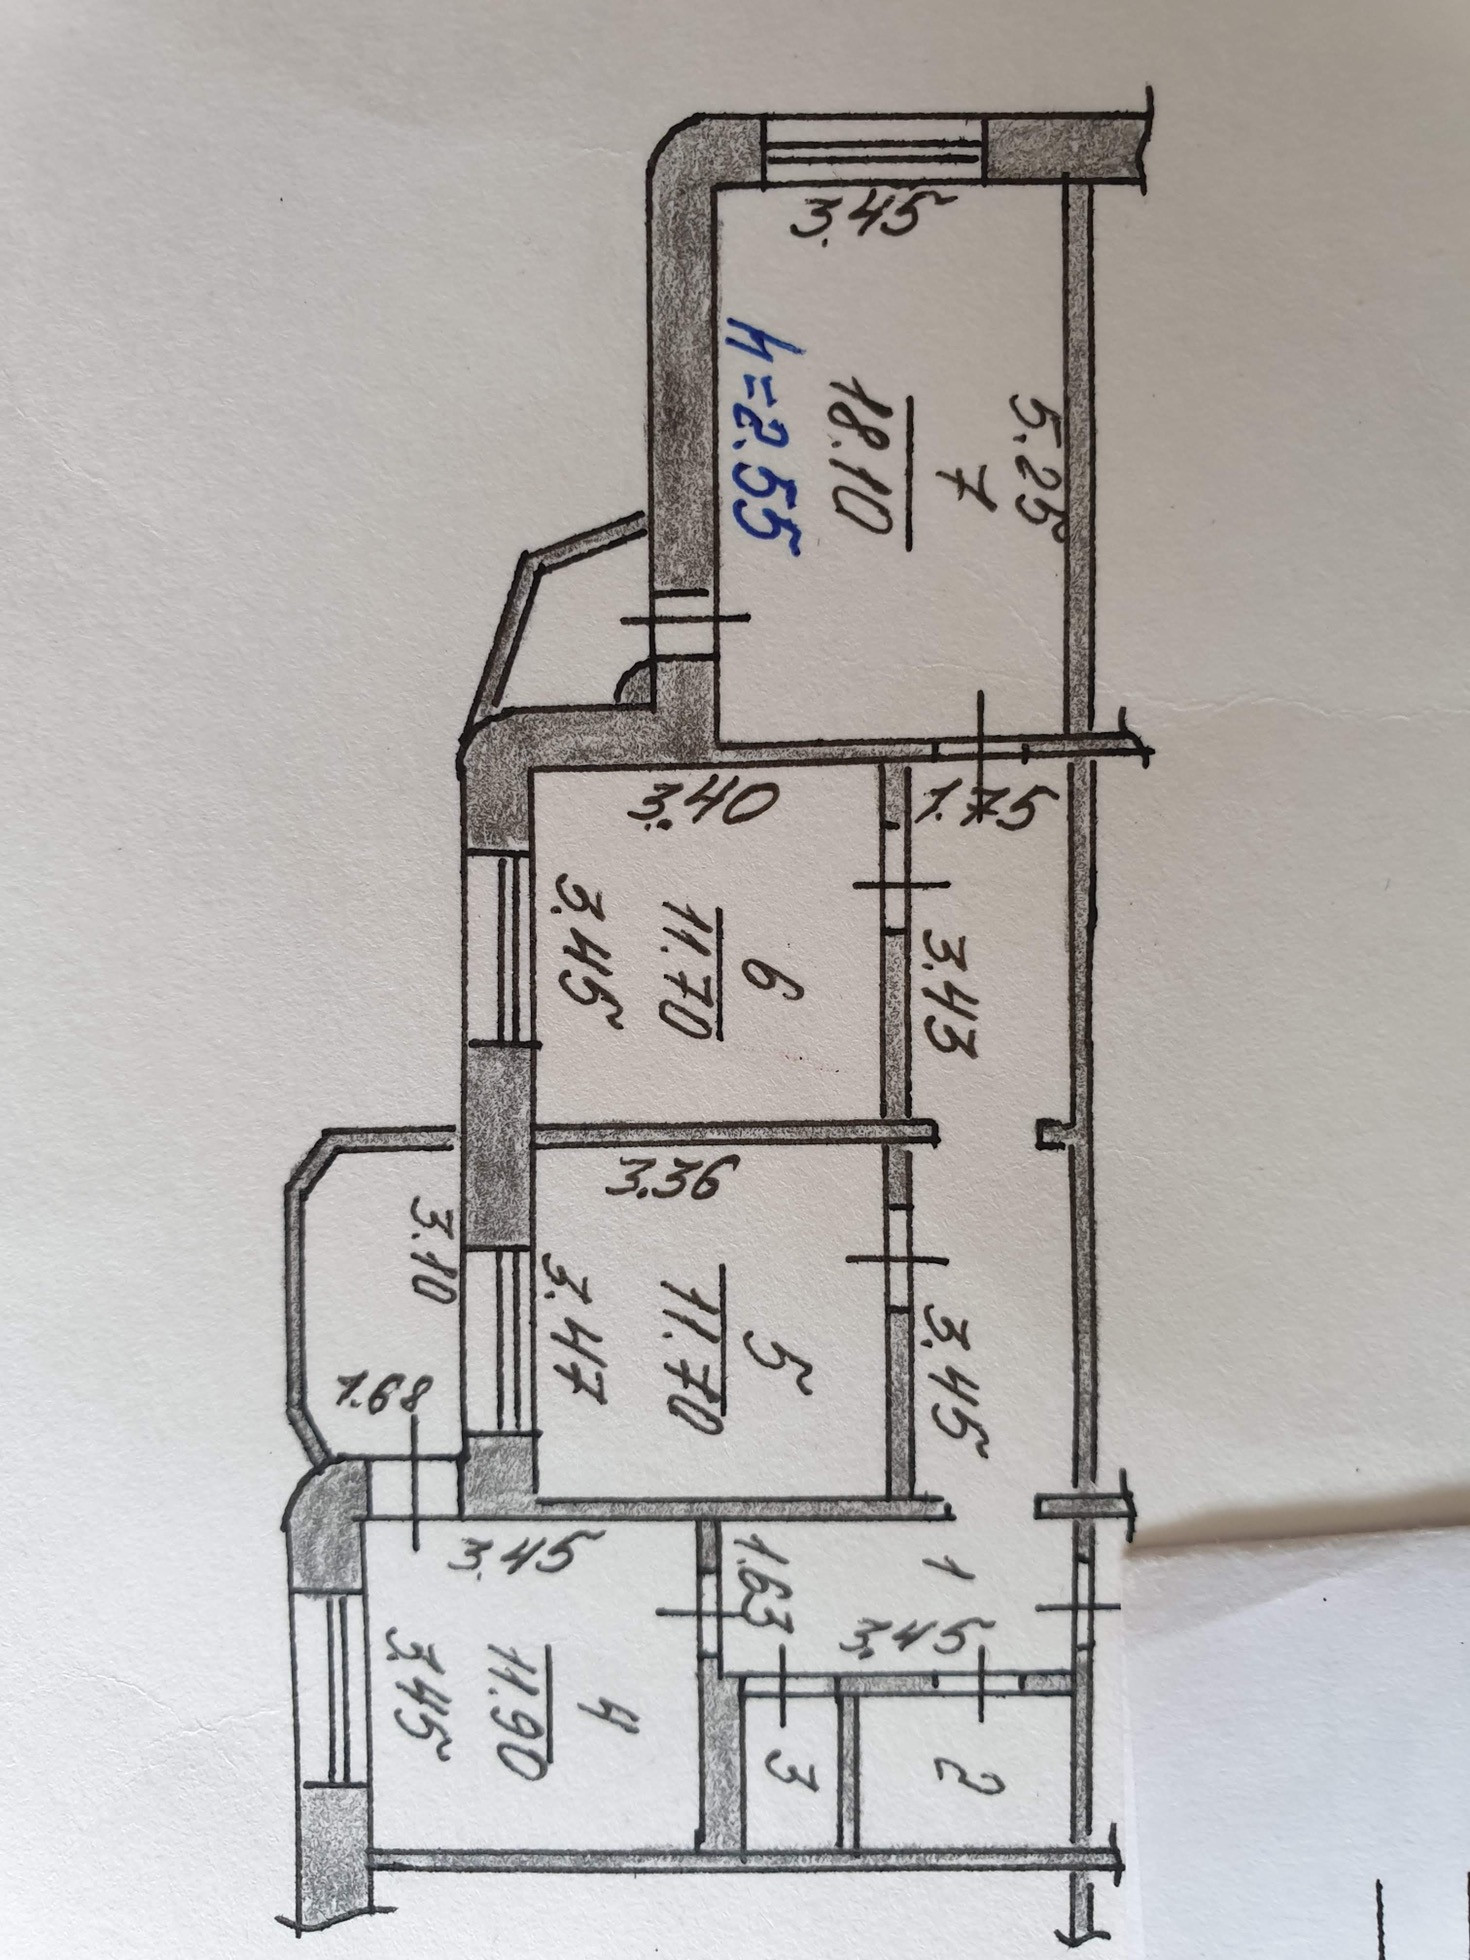 3.45
5.25
7
18.10
h=2.55
3.40
1.75
6
11.70
3.45
3.43
3.36
5
11.70
3.47
3.45
3.10
1.68
3.45
1.63
1
3.45
4
11.90
3.45
3
2